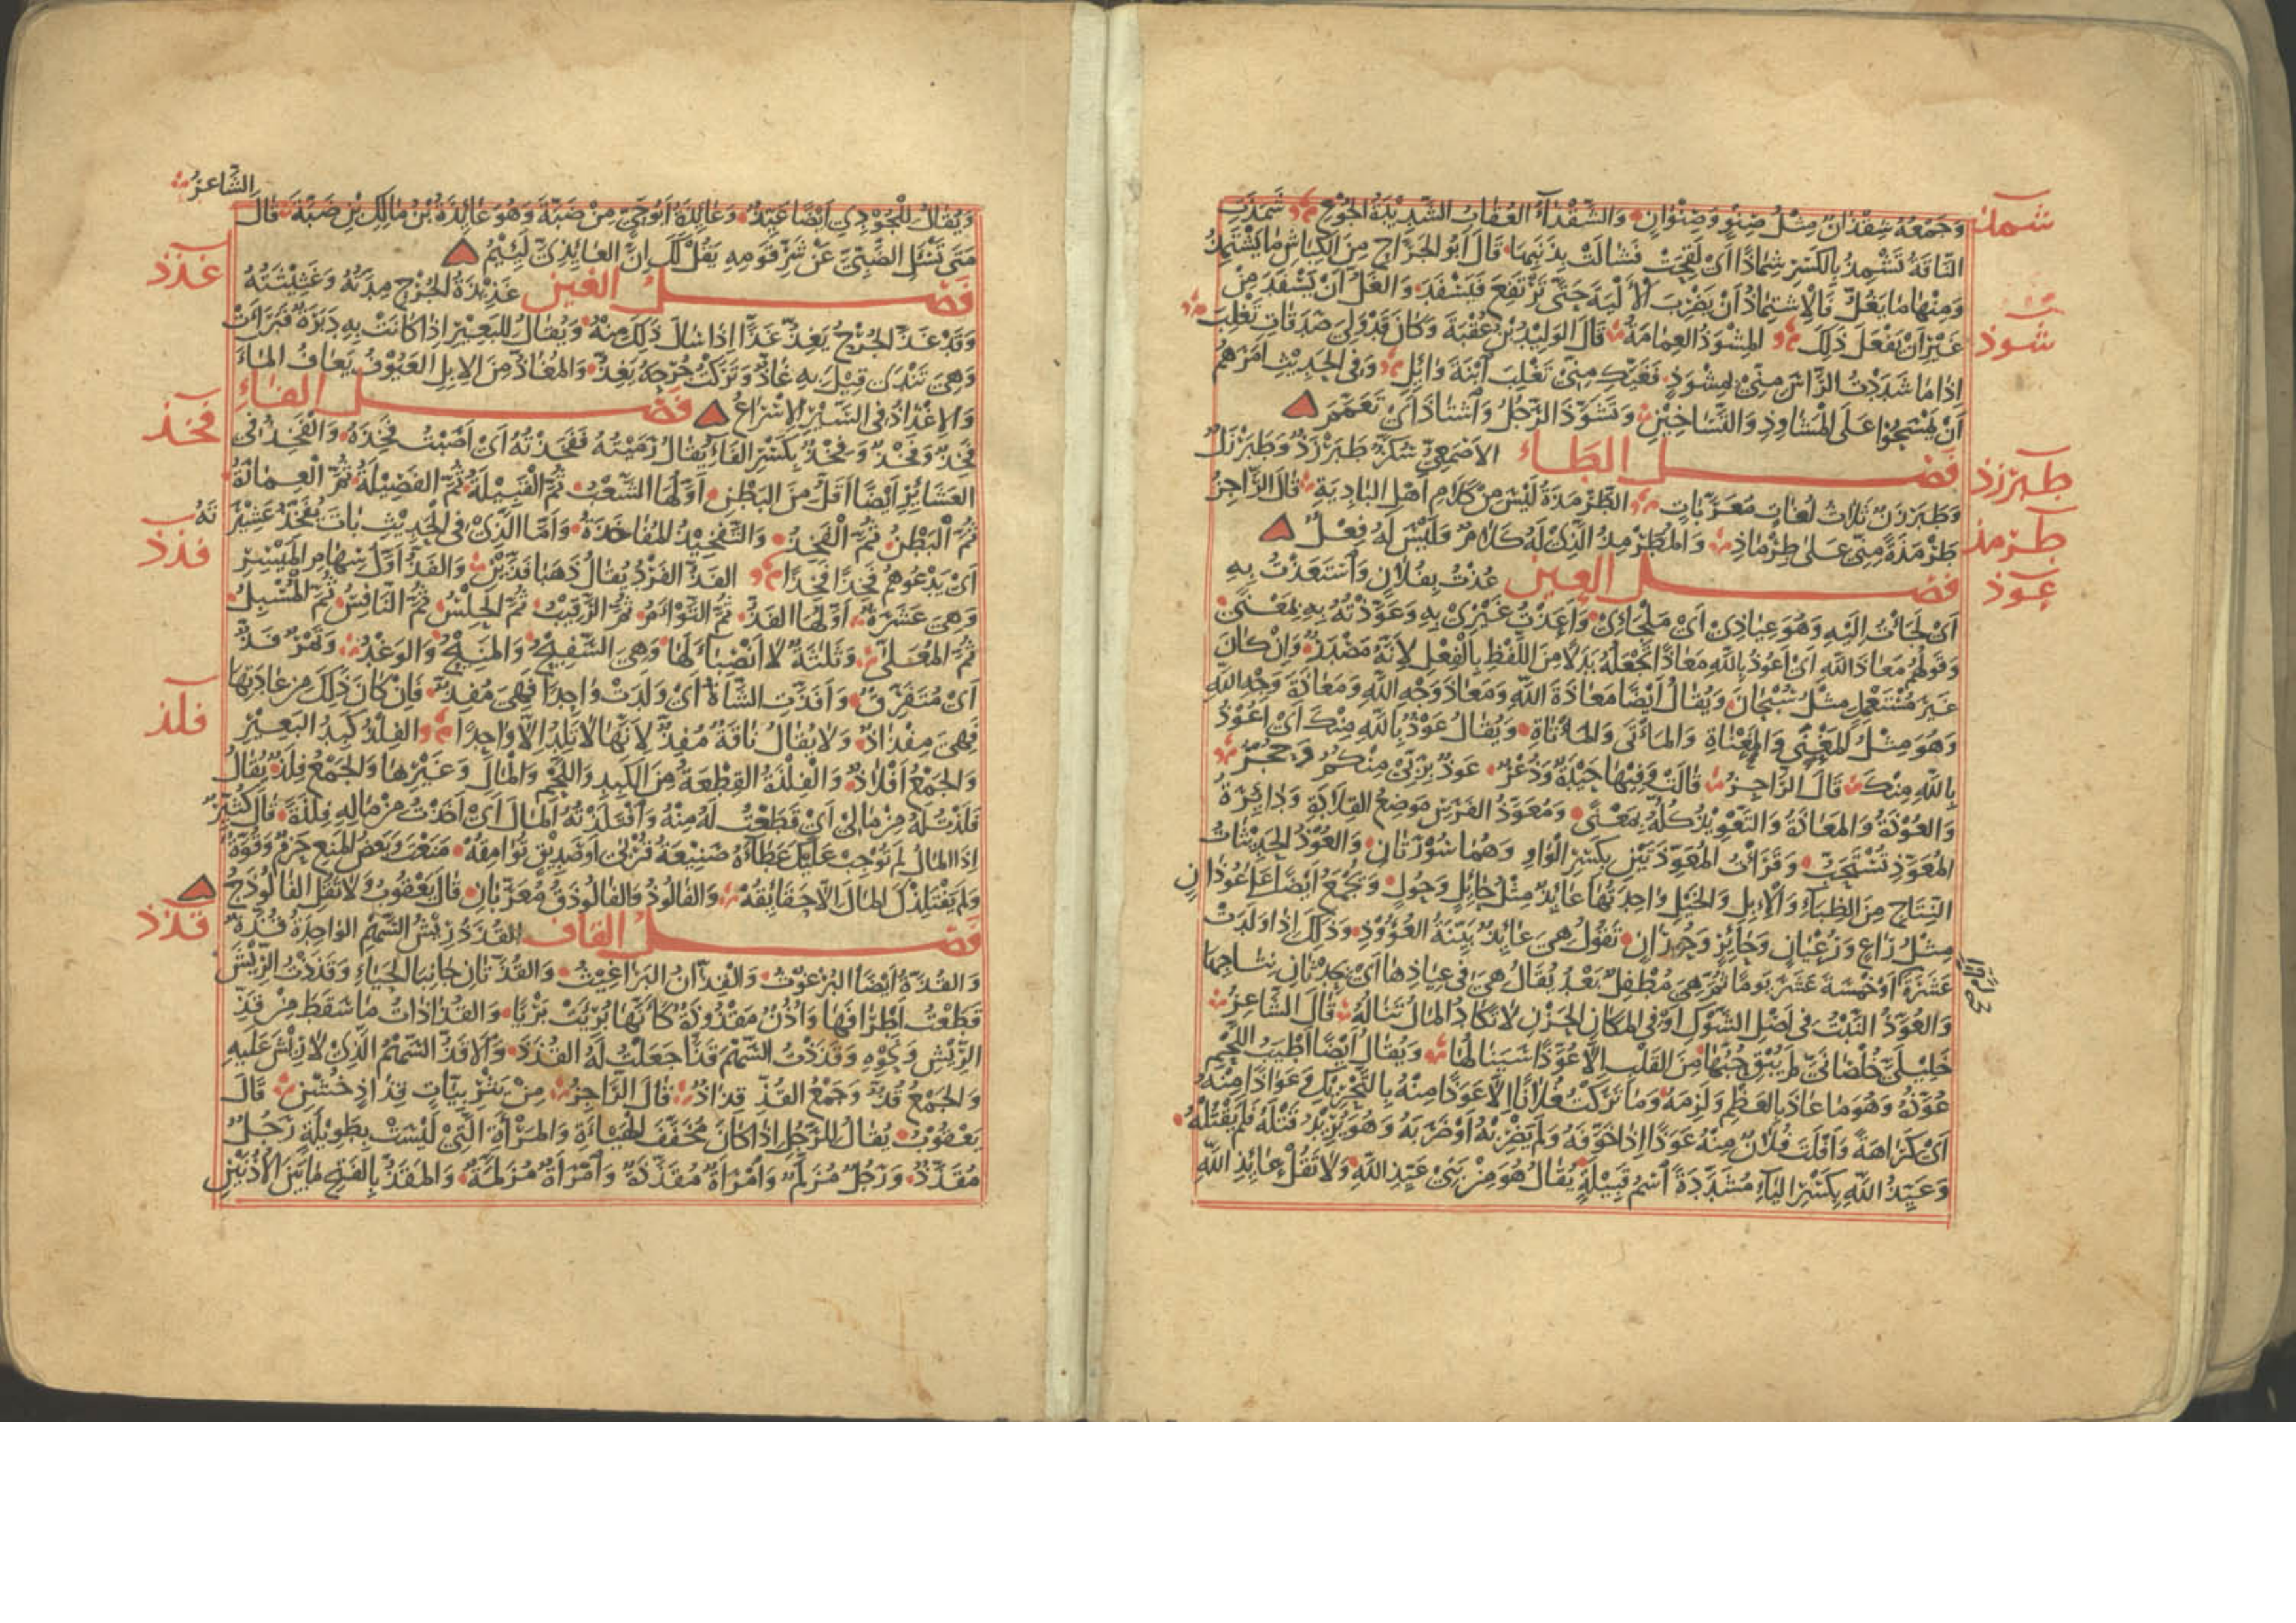 وَجَمْعُهُ شِقْذَانٌ مِثْلُ صِنْوٍ وَصِنْوَانٍ وَالشَّقْذَآءُ العُقَابُ الشَّدِيْدَةُ الجُوْعِ شَمَذَتِ
شمذ
النَّاقَةُ تَشْمِذُ بِالكَسْرِ شِمَاذًا اَيْ لَقِحَتْ فَشَالَتْ بِذَنَبِهَا قَالَ اَبُو الجَرَّاحِ مِنَ الكِبَاشِ مَا يَشْتَمِذُ
وَمِنْهَا مَا يَغُلُّ فَالِاشْتِمَاذُ اَنْ يَضْرِبَ الْاَلْيَةَ حَتَّى تَرْتَفِعَ فَيَسْفَدَ وَالغَلُّ اَنْ يَسْفِدَ مِنْ
غَيْرِ اَنْ يَفْعَلَ ذَلِكَ المِشْوَذُ العِمَامَةُ قَالَ الوَلِيْدُ بْنُ عُقْبَةَ وَكَانَ قَدْ وَلِيَ صَدَقَاتِ تَغْلِبَ
شوذ
اِذَا مَا شَدَدْتُ الرَّاْسَ مِنِّيْ بِمِشْوَذٍ فَغَيَّكِ مِنِّيْ تَغْلِبَ ابْنَةَ وَائِلِ وَفِي الحَدِيْثِ اَمَرَهُمْ
اَنْ يَمْسَحُوْا عَلَى الْمَشَاوِذِ وَالتَّسَاخِيْنِ وَتَشَوَّذَ الرَّجُلُ وَاشْتَاذَ اَيْ تَعَمَّمَ
فصل الطاء الاَصْمَعِيُّ سُكَّرٌ طَبَرْزَذٌ وَطَبَرْزَلٌ
طبرزذ
وَطَبَرْزَنٌ ثَلَاثُ لُغَاتٍ مُعَرَّبَاتٍ الطَّرْمَذَةُ لَيْسَ مِنْ كَلَامِ اَهْلِ البَادِيَةِ قَالَ الرَّاجِزُ
طرمذ
طَرْمَذَةً مِنِّيْ عَلَى طِرْمَاذِ وَالمُطَرْمِذُ الَّذِيْ لَهُ كَلَامٌ وَلَيْسَ لَهُ فِعْلٌ
فصل العين عُذْتُ بِفُلَانٍ وَاسْتَعَذْتُ بِهِ
عوذ
اَيْ لَجَاْتُ اِلَيْهِ وَهُوَ عِيَاذِيْ اَيْ مَلْجَاِيْ وَاَعَذْتُ غَيْرِيْ بِهِ وَعَوَّذْتُهُ بِهِ بِمَعْنًى
وَقَوْلُهُمْ مَعَاذَ اللّٰهِ اَيْ اَعُوْذُ بِاللّٰهِ مَعَاذًا تَجْعَلُهُ بَدَلًا مِنَ اللَّفْظِ بِالْفِعْلِ لِاَنَّهُ مَصْدَرٌ وَاِنْ كَانَ
غَيْرَ مُسْتَعْمَلٍ مِثْلُ سُبْحَانَ وَيُقَالُ اَيْضًا مَعَاذَةَ اللّٰهِ وَمَعَاذَ وَجْهِ اللّٰهِ وَمَعَاذَةَ وَجْهِ اللّٰهِ
وَهُوَ مِثْلُ المَعْنَى وَالْمَعْنَاةِ وَالمَاْتَى وَالمَاْتَاةِ وَيُقَالُ عَوْذٌ بِاللّٰهِ مِنْكَ اَيْ اَعُوْذُ
بِاللّٰهِ مِنْكَ قَالَ الرَّاجِزُ قَالَتْ وَفِيْهَا حَيْدَةٌ وَذُعْرُ عَوْذٌ بِرَبِّيْ مِنْكُمْ وَحَجْرُ
وَالعُوْذَةُ وَالمَعَاذَةُ وَالتَّعْوِيْذُ كُلُّهُ بِمَعْنًى وَمُعَوَّذُ الفَرَسِ مَوْضِعُ القِلَادَةِ وَدَائِرَةُ
المُعَوَّذِ تُسْتَحَبُّ وَقَرَاْتُ المُعَوِّذَتَيْنِ بِكَسْرِ الْوَاوِ وَهُمَا سُوْرَتَانِ وَالعُوْذُ الحَدِيْثَاتُ
النِّتَاجِ مِنَ الظِّبَآءِ وَالْاِبِلِ وَالخَيْلِ وَاحِدَتُهَا عَائِذٌ مِثْلُ حَائِلٍ وَحُوْلٍ وَتُجْمَعُ اَيْضًا عَلَى عُوْذَانٍ
مِثْلُ رَاعٍ وَرُعْيَانٍ وَحَائِرٍ وَحُوْرَانٍ تَقُوْلُ هِيَ عَائِذٌ بَيِّنَةُ العُؤُوْذِ وَذَلِكَ اِذَا وَلَدَتْ
عَشَرَةَ اَوْ خَمْسَةَ عَشَرَ يَوْمًا ثُمَّ هِيَ مُطْفِلٌ بَعْدُ يُقَالُ هِيَ فِي عِيَاذِهَا اَيْ بِحِدْثَانِ نِتَاجِهَا
وَالعُوَّذُ النَّبْتُ فِي اَصْلِ الشَّوْكِ اَوْ فِي المَكَانِ الحَزْنِ لَا تَكَادُ المَالُ تَنَالُهُ قَالَ الشَّاعِرُ
خَلِيْلَيَّ خُلْصَانَيَّ لَمْ يُبْقِ حُبُّهَا مِنَ القَلْبِ اِلَّا عُوَّذًا سَيَنَالُهَا وَيُقَالُ اَيْضًا اَطْيَبُ اللَّحْمِ
عُوَّذُهُ وَهُوَ مَا عَاذَ بِالعَظْمِ وَلَزِمَهُ وَمَا تَرَكْتُ فُلَانًا اِلَّا عَوَذًا مِنْهُ بِالتَّحْرِيْكِ وَعَوَاذًا مِنْهُ
اَيْ كَرَاهَةً وَاَفْلَتَ فُلَانٌ مِنْهُ عَوَذًا اِذَا خَوَّفَهُ وَلَمْ يَضْرِبْهُ اَوْ ضَرَبَهُ وَهُوَ يُرِيْدُ قَتْلَهُ فَلَمْ يَقْتُلْهُ
وَعَيِّذُ اللّٰهِ بِكَسْرِ اليَاءِ مُشَدَّدَةً اسْمُ قَبِيْلَةٍ يُقَالُ هُوَ مِنْ بَنِيْ عَيِّذِ اللّٰهِ وَلَا تَقُلْ عَائِذِ اللّٰهِ
الشَّاعِرُ
وَيُقَالُ لِلْجُوْدِيِّ اَيْضًا عَيِّذٌ وَعَائِذَةُ اَبُوْ حَيٍّ مِنْ ضَبَّةَ وَهُوَ عَائِذَةُ بْنُ مَالِكِ بْنِ ضَبَّةَ قَالَ
مَتَى تَسْئَلِ الضَّبِّيَّ عَنْ شَرِّ قَوْمِهِ يَقُلْ لَكَ اِنَّ العَائِذِيَّ لَئِيْمُ
فصل الغين غَذِيْذَةُ الجُرْحِ مِدَّتُهُ وَغَثِيْثَتُهُ
غذذ
وَقَدْ غَذَّ الجُرْحُ يَغِذُّ غَذًّا اِذَا سَالَ ذَلِكَ مِنْهُ وَيُقَالُ لِلْبَعِيْرِ اِذَا كَانَتْ بِهِ دَبَرَةٌ فَبَرَاَتْ
وَهِيَ تَنْدَى قِيْلَ بِهِ غَاذٌّ وَتَرَكْتُ جُرْحَهُ يَغِذُّ وَالمُغَاذُّ مِنَ الاِبِلِ العَيُوْفُ يَعَافُ المَاءَ
وَالاِغْذَاذُ فِي السَّيْرِ الاِسْرَاعُ فصل الفاء
فَخِذٌ وَفَخْذٌ وَفِخْذٌ بِكَسْرِ الفَاءِ يُقَالُ رَمَيْتُهُ فَفَخَذْتُهُ اَيْ اَصَبْتُ فَخِذَهُ وَالفَخِذُ فِي
فخذ
العَشَائِرِ اَيْضًا اَقَلُّ مِنَ البَطْنِ اَوَّلُهَا الشَّعْبُ ثُمَّ القَبِيْلَةُ ثُمَّ الفَصِيْلَةُ ثُمَّ العِمَارَةُ
ثُمَّ الْبَطْنُ ثُمَّ الْفَخِذُ وَالتَّفْخِيْذُ المُفَاخَذَةُ وَاَمَّا الَّذِيْ فِي الحَدِيْثِ بَاتَ يُفَخِّذُ عَشِيْرَتَهُ
اَيْ يَدْعُوْهُمْ فَخِذًا فَخِذًا الفَذُّ الفَرْدُ يُقَالُ ذَهَبَا فَذَّيْنِ وَالفَذُّ اَوَّلُ سِهَامِ المَيْسِرِ
فذذ
وَهِيَ عَشَرَةٌ اَوَّلُهَا الفَذُّ ثُمَّ التَّوْاَمُ ثُمَّ الرَّقِيْبُ ثُمَّ الحِلْسُ ثُمَّ النَّافِسُ ثُمَّ المُسْبِلُ
ثُمَّ المُعَلَّى وَثَلٰثَةٌ لَا اَنْصِبَاءَ لَهَا وَهِيَ السَّفِيْحُ وَالمَنِيْحُ وَالوَغْدُ وَتَمْرٌ فَذٌّ
اَيْ مُتَفَرِّقٌ وَاَفَذَّتِ الشَّاةُ اَيْ وَلَدَتْ وَاحِدًا فَهِيَ مُفِذٌّ فَاِنْ كَانَ ذَلِكَ مِنْ عَادَتِهَا
فَهِيَ مِفْذَاذٌ وَلَا يُقَالُ نَاقَةٌ مُفِذٌّ لِاَنَّهَا لَا تَلِدُ اِلَّا وَاحِدًا الفِلْذُ كَبِدُ البَعِيْرِ
فلذ
وَالجَمْعُ اَفْلَاذٌ وَالْفِلْذَةُ القِطْعَةُ مِنَ الكَبِدِ وَاللَّحْمِ وَالْمَالِ وَغَيْرِهَا وَالجَمْعُ فِلَذٌ يُقَالُ
فَلَذْتُ لَهُ مِنْ مَالِيْ اَيْ قَطَعْتُ لَهُ مِنْهُ وَافْتَلَذْتُهُ المَالَ اَيْ اَخَذْتُ مِنْ مَالِهِ فِلْذَةً قَالَ كُثَيِّرٌ
اِذَا المَالُ لَمْ تُوْجِبْ عَلَيْكَ عَطَآءَهُ صَنِيْعَةُ قُرْبَى اَوْ صَدِيْقٍ تُوَامِقُهُ مَنَعْتَ وَبَعْضُ المَنْعِ حَزْمٌ وَقُوَّةٌ
وَلَمْ يَفْتَلِذْكَ المَالَ اِلَّا حَقَائِقُهُ وَالفَالُوْذُ وَالفَالُوْذَقُ مُعَرَّبَانِ قَالَ يَعْقُوْبُ وَلَا تَقُلِ الفَالُوْذَجُ
فصل القاف القُذَذُ رِيْشُ السَّهْمِ الوَاحِدَةُ قُذَّةٌ
قذذ
وَالقُذَّةُ اَيْضًا البُرْغُوْثُ وَالقِذَّانُ البَرَاغِيْثُ وَالقُذَّتَانِ جَانِبَا الحَيَاءِ وَقَذَذْتُ الرِّيْشَ
قَطَعْتُ اَطْرَافَهَا وَاُذُنٌ مَقْذُوْذَةٌ كَاَنَّهَا بُرِيَتْ بَرْيًا وَالقُذَاذَاتُ مَا سَقَطَ مِنْ قَذِّ
الرِّيْشِ وَنَحْوِهِ وَقَذَذْتُ السَّهْمَ قَذًّا جَعَلْتُ لَهُ القُذَذَ وَالاَقَذُّ السَّهْمُ الَّذِيْ لَا رِيْشَ عَلَيْهِ
وَالجَمْعُ قُذٌّ وَجَمْعُ القُذِّ قِذَاذٌ قَالَ الرَّاجِزُ مِنْ يَثْرِبِيَّاتٍ قِذَاذٍ خُشْنِ قَالَ
يَعْقُوْبُ يُقَالُ لِلرَّجُلِ اِذَا كَانَ مُخَفَّفَ الهَيْاَةِ وَالمَرْاَةِ الَّتِيْ لَيْسَتْ بِطَوِيْلَةٍ رَجُلٌ
مُقَذَّذٌ وَرَجُلٌ مُزَلَّمٌ وَامْرَاَةٌ مُقَذَّذَةٌ وَامْرَاَةٌ مُزَلَّمَةٌ وَالمَقَذُّ بِالفَتْحِ مَا بَيْنَ الاُذُنَيْنِ